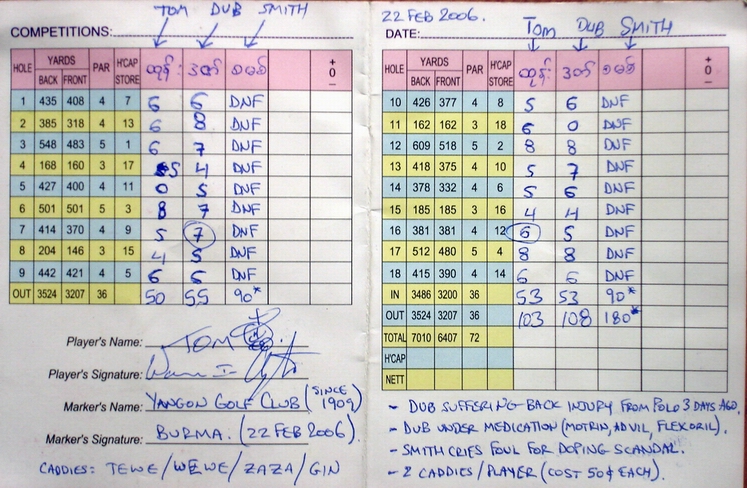 TOM DUB SMITH
COMPETITIONS:
HOLE YARDS PAR H'CAP STORE ထွန်း ဒတ် စမစ် + 0 -
BACK FRONT
1 435 408 4 7 6 6 DNF
2 385 318 4 13 6 8 DNF
3 548 483 5 1 6 7 DNF
4 168 160 3 17 5 4 DNF
5 427 400 4 11 0 5 DNF
6 501 501 5 3 8 7 DNF
7 414 370 4 9 5 7 DNF
8 204 146 3 15 4 5 DNF
9 442 421 4 5 6 6 DNF
OUT 3524 3207 36 50 55 90*
Player's Name: TOM
Player's Signature:
Marker's Name: YANGON GOLF CLUB (SINCE 1909)
Marker's Signature: BURMA. (22 FEB 2006).
CADDIES: TEWE/WEWE/ZAZA/GIN
22 FEB 2006.
TOM DUB SMITH
DATE:
HOLE YARDS PAR H'CAP STORE ထွန်း ဒတ် စမစ် + 0 -
BACK FRONT
10 426 377 4 8 5 6 DNF
11 162 162 3 18 6 0 DNF
12 609 518 5 2 8 8 DNF
13 418 375 4 10 5 7 DNF
14 378 332 4 6 5 6 DNF
15 185 185 3 16 4 4 DNF
16 381 381 4 12 6 5 DNF
17 512 480 5 4 8 8 DNF
18 415 390 4 14 6 6 DNF
IN 3486 3200 36 53 53 90*
OUT 3524 3207 36 103 108 180*
TOTAL 7010 6407 72
H'CAP
NETT
- DUB SUFFERING BACK INJURY FROM POLO 3 DAYS AGO.
- DUB UNDER MEDICATION (MOTRIN, ADVIL, FLEXORIL).
- SMITH CRIES FOUL FOR DOPING SCANDAL.
- 2 CADDIES/PLAYER (COST 50¢ EACH).